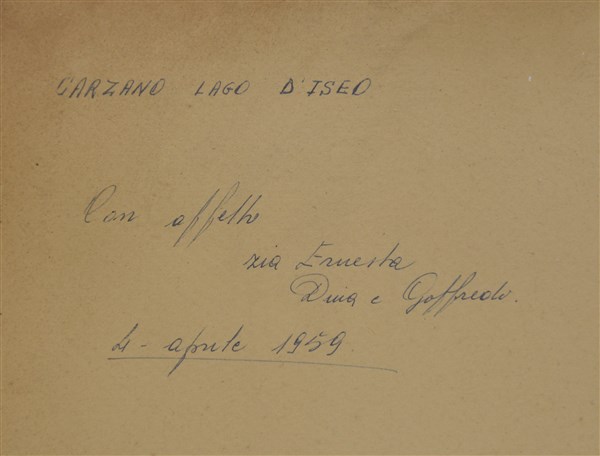 GARZANO LAGO D'ISEO
Con affetto
zia Ernesta
Dina e Goffredo.
4 - aprile 1959